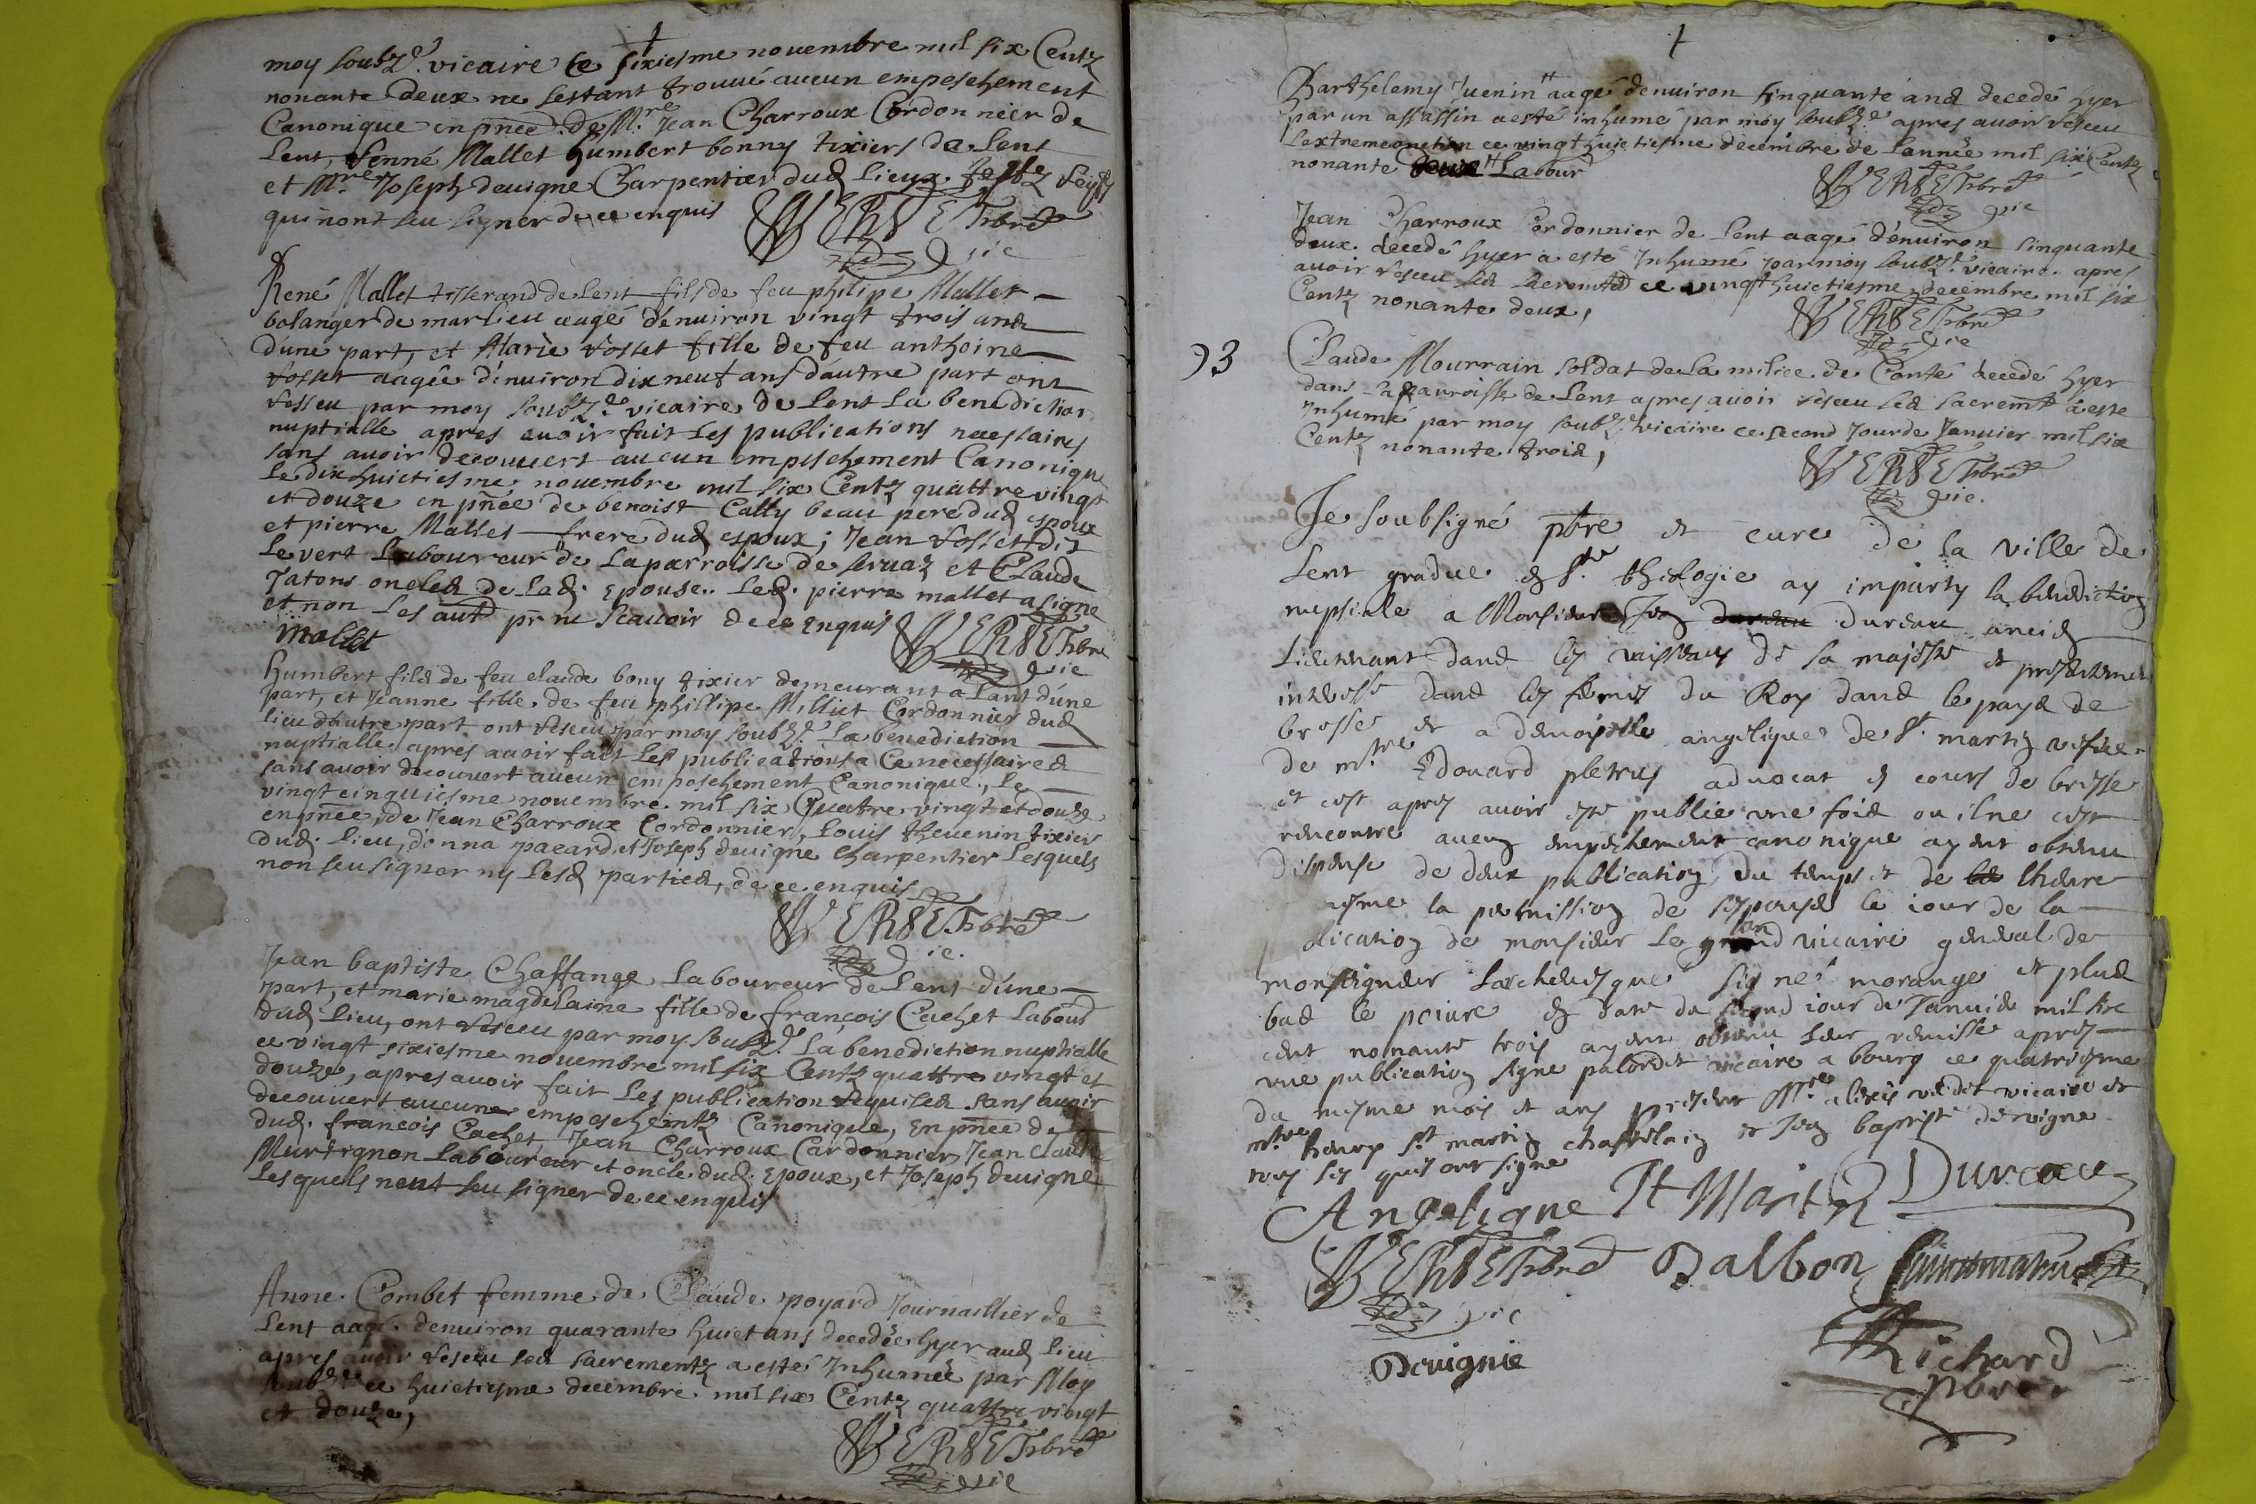 moy soubz.é vicaire ce sixiesme novembre mil six Centz
nonante deux ne sestant trouué aucun empeschement
Canonique en pñce de Mre Jean Charroux Cordonnier de
Lent, Mallet humbert bonny tixiers de Lent
et Mre Joseph deuigne Charpentier dud lieux
qui nont seu signer de ce enquis
vic
René Mallet tisserand de Lent fils de feu philipe Mallet
bolanger de marlieu aagé denuiron vingt trois ans
dune part, et Marie vosset fille de feu anthoine
vosset aagée denuiron dix neuf ans dautre part ont
resceu par moy soubz.é vicaire de Lent La benediction
nuptialle apres auoir fait Les publications necessaires
sans auoir decouuert aucun empeschement Canonique
Le dix huictiesme nouembre mil six Centz quattre vingt
et douze en pñce de benoist Cally beau pere dud espoux
et pierre Mallet frere dud espoux; Jean vosset dit
Le vert Laboureur de La parroisse de seruaz et Claude
Jatons oncles de Lad. Epouse. Led. pierre mallet a signe
et non Les aut pr ne scauoir de ce enquis
mallet
vic
humbert fils de feu claude bony tixier demeurant a Lant d'une
part, et Jeanne fille de feu phillipe Milliet Cordonnier dud
lieu d'autre part ont resceu par moy soubz.é La benediction
nuptialle apres auoir fait Les publications a Ce necessaires
sans auoir decouuert aucun empeschement Canonique, Le
vingt cinquiesme nouembre mil six Quatre vingt et douze
en pñce de Jean Charroux Cordonnier, Louis theuenin tixier
dud. lieu, donna pacard et Joseph deuigne Charpentier Lesquels
non seu signer ny Lesd parties, de ce enquis
vic.
Jean baptiste Chaffange Laboureur de Lent d'une
part, et marie magdelaine fille de françois Cachet Labour
dud lieu, ont resceu par moy soubz.é La benediction nuptialle
ce vingt sixiesme nouembre mil six Centz quattre vingt et
douze, apres auoir fait Les publication requises sans auoir
decouuert aucuner empeschemtz Canonique, En pñce de
dud. francois Cachet, Jean Charroux Cordonnier, Jean Claude
Murtignon Laboureur et oncle dud. Epoux, et Joseph deuigne
Lesquels nont seu signer de ce enquis
Anne Combet femme de Claude poyard Journaillier de
Lent aagé denuiron quarante huict ans decedée hyer aud lieu
apres auoir resceu ses sacrementz a esté Inhumée par Moy
soubz.é ce huictiesme decembre mil six Centz quattre vingt
et douze,
vic
Barthelemy Juenin aagé denuiron sinquante ans decedé hyer
par un assassin a esté inhumé par moy soubz.é apres auoir resceu
Lextremeonction ce vingt huictiesme decembre de Lannée mil six Centz
nonante deux Labour
vic
Jean Charroux Cordonnier de Lent aagé d'enuiron sinquante
deux decedé hyer a esté Inhumé par moy soubz.é vicaire apres
auoir resceu ses sacremts ce vingt huictiesme decembre mil six
Centz nonante deux,
vic
93
Claude Mourrain soldat de La milice de Conté decedé hyer
dans La parroisse de Lent apres auoir resceu ses sacremts a esté
Inhumé par moy soubz.é vicaire ce second Jour de Januier mil six
Centz nonante trois,
vic.
Je soubsigné pbre et cure de la ville de
Lent gradue en Ste theologie ay imparty la benediction
nuptiale a Monsieur Jean Dureau ancien
Lieutenant dans les vaisseaux de sa majeste et presentement
interessé dans les fermes du Roy dans le pays de
bresse et a demoyselle angelique de St martin vefue
de mtre Edouard pletruy aduocat en cours de bresse
et cest apres auoir este publie vne fois ou il ne cest
rencontre aucun empechement canonique ayent obtenu
dispense de deux publication, du temps et de lheure
mesme la permission de le iour de la
dication de monsieur le grand vicaire general de
monseigneur Larcheuesque signé morange et plus
bas le poiure en date du second iour de Januier mil six
cent nonante trois ayent obtenu leur remisse apres
vne publication signe palordet vicaire a bourg ce quatriesme
du mesme mois et ans present Mre alexis verdet vicaire et
mtre henry St martin chastelain et Jean baptiste devigne
qui ont signe
Angelique St Martin Dureau
Balbon
vic
Devignie
Richard
pbre